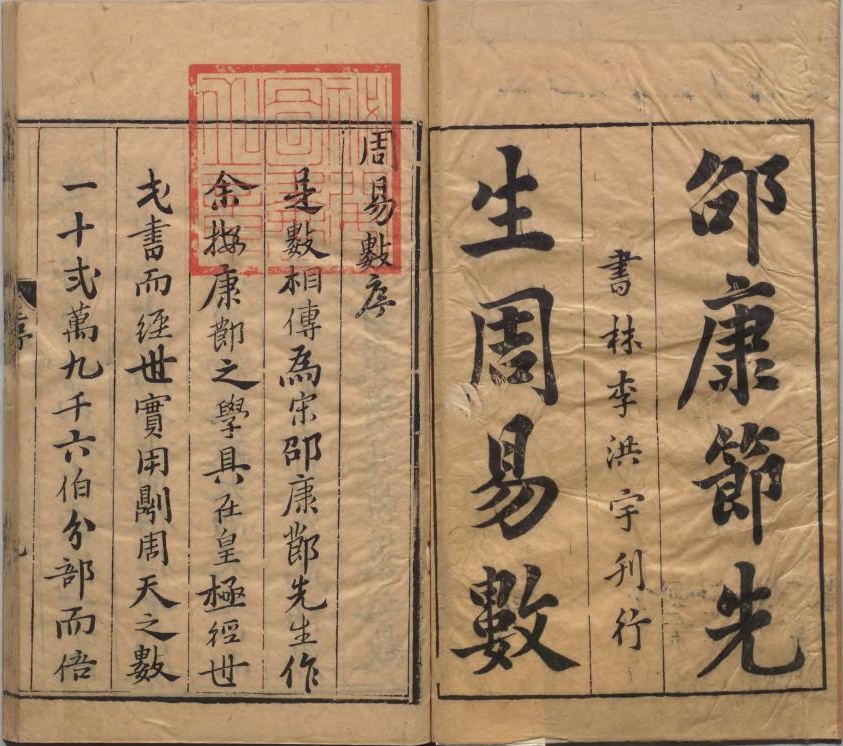 邵康節先
書林李洪宇刊行
生周易數
周易數序
是數相傳爲宋邵康節先生作
余按康節之學具在皇極經世
之書而經世實用劘周天之數
一十弍萬九千六伯分部而倍
序